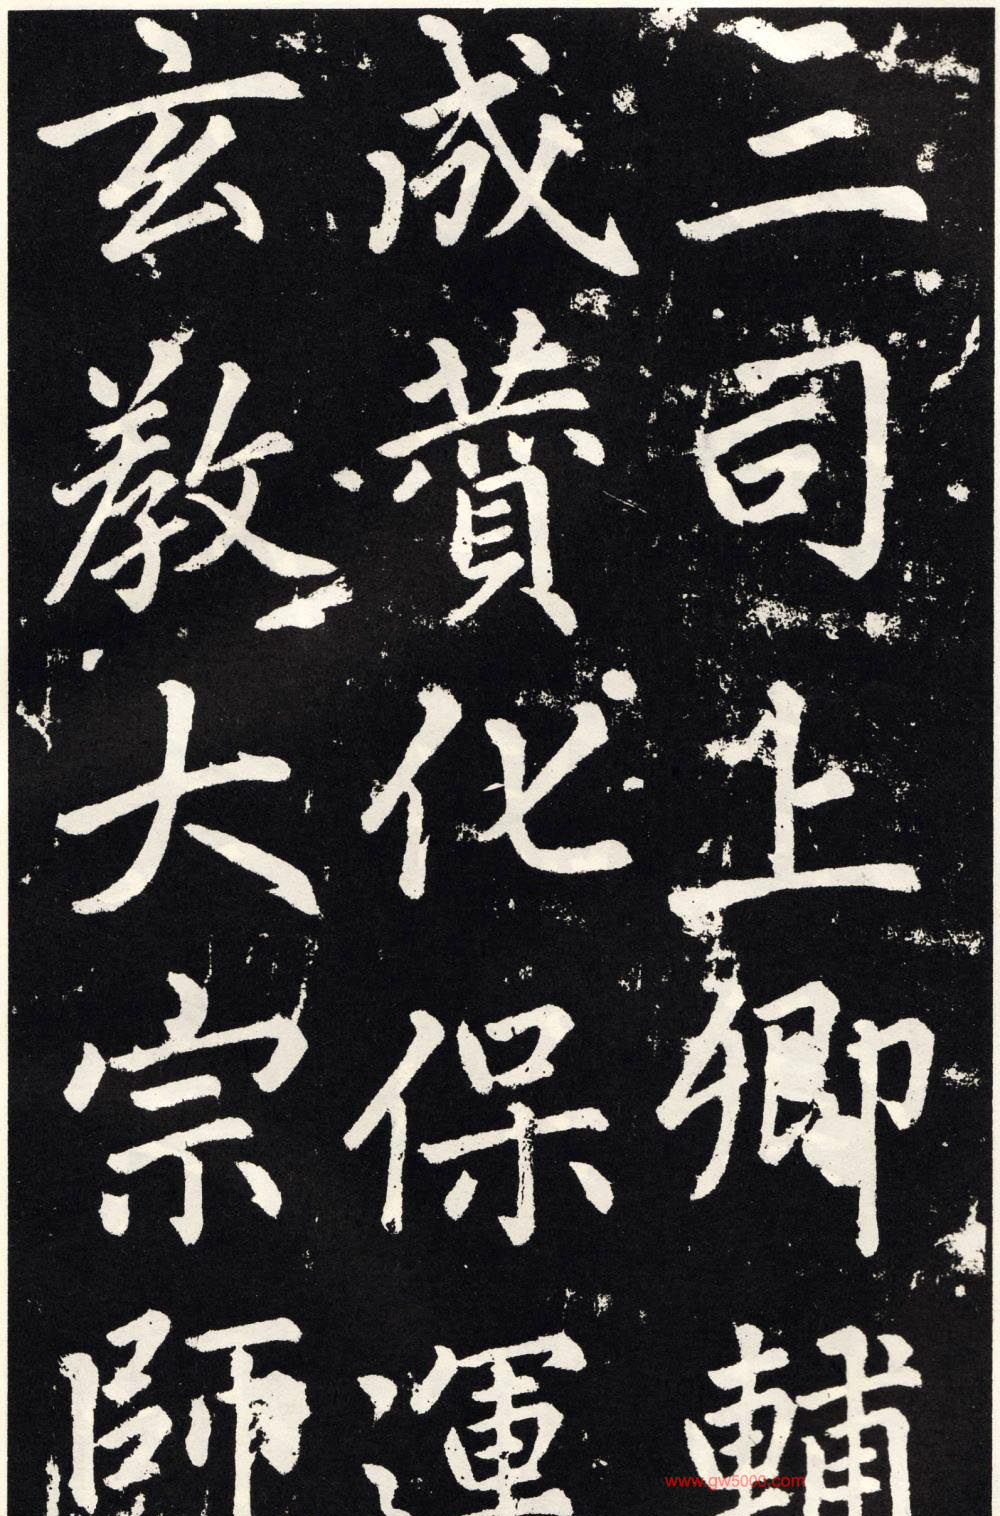 三司上卿輔
成贊化保運
玄教大宗師
www.gw5000.com